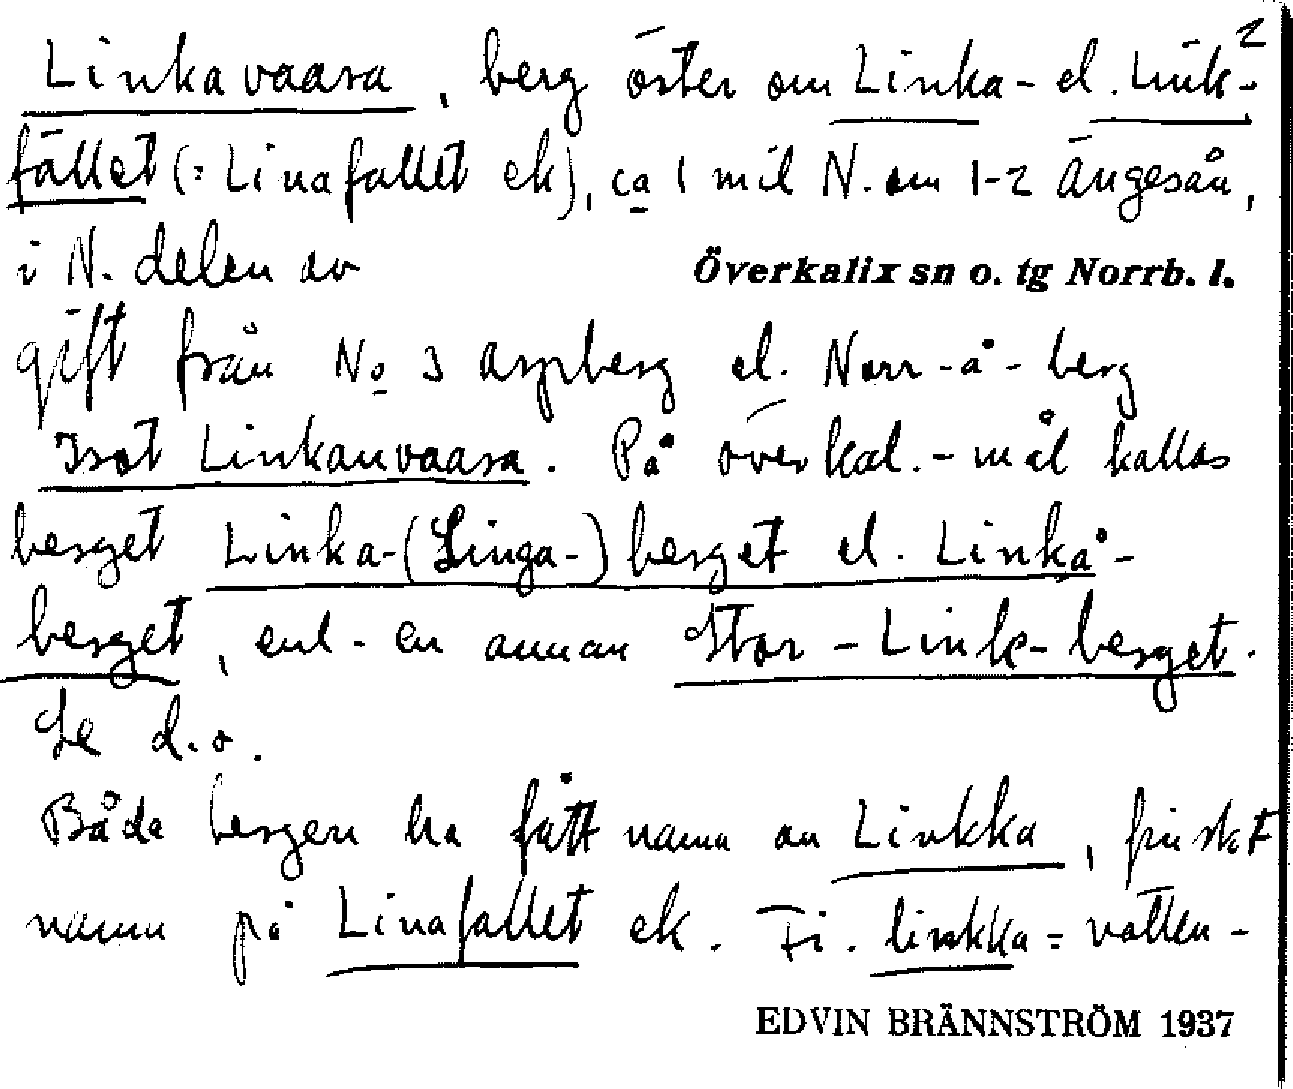 2
Linkavaara, berg öster om Linka- el. Link-
fället (= Linafallet ek), ca 1 mil N. om 1-2 Ängesån,
i N. delen av Överkalix sn o. tg Norrb. l.
gift från No 3 Aspberg el. Norr-å-berg
Isot Linkanvaara. På överkal.-mål kallas
berget Linka-(Linga-)berget el. Linkå-
berget, enl. en annan Stor-Link-berget.
Se d.o.
Båda bergen ha fått namn av Linkka, finskt
namn på Linafallet ek. Fi. linkka = vatten-
EDVIN BRÄNNSTRÖM 1937